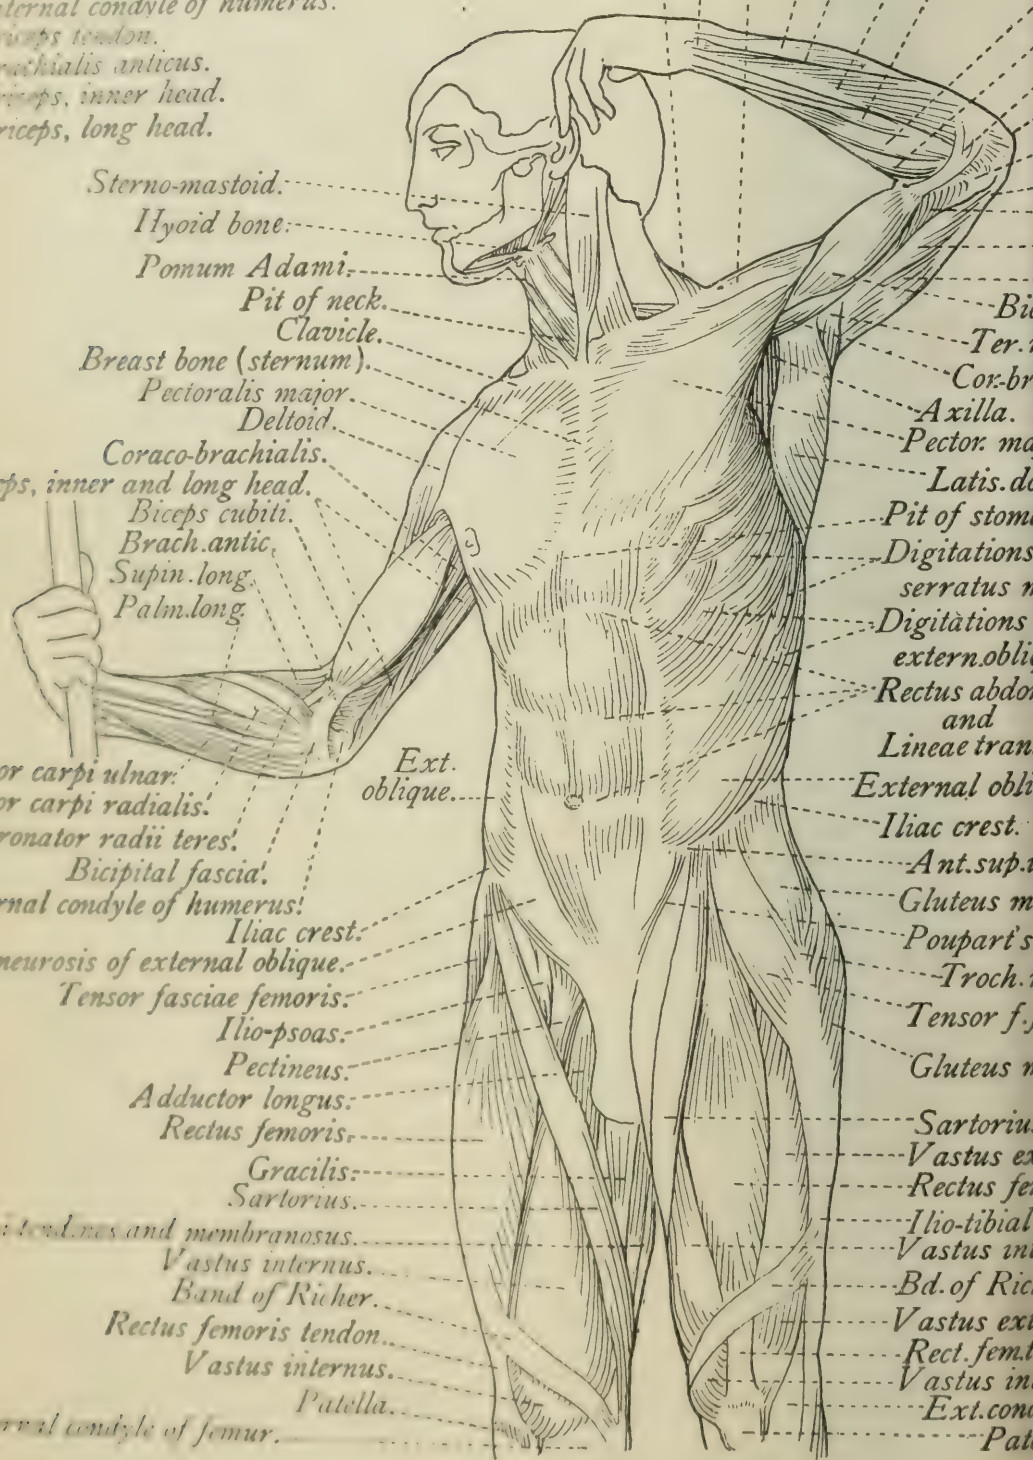 ternal condyle of humerus.
tendon.
anticus.
inner head.
riceps, long head.
Sterno-mastoid.
Hyoid bone.
Pomum Adami.
Pit of neck.
Clavicle.
Breast bone (sternum).
Pectoralis major.
Deltoid.
Coraco-brachialis.
ps, inner and long head.
Biceps cubiti.
Brach.antic.
Supin.long.
Palm.long.
or carpi ulnar.
or carpi radialis.
ronator radii teres.
Bicipital fascia.
rnal condyle of humerus.
Ext.
oblique.
Iliac crest.
neurosis of external oblique.
Tensor fasciae femoris.
Ilio-psoas.
Pectineus.
Adductor longus.
Rectus femoris.
Gracilis.
Sartorius.
and membranosus.
Vastus internus.
Band of Richer.
Rectus femoris tendon.
Vastus internus.
Patella.
condyle of femur.
Bi
Ter.
Cor.-br
Axilla.
Pector. ma
Latis.do
Pit of stom
Digitations
serratus
Digitations
extern.obli
Rectus abdo
and
Lineae tran
External obli
Iliac crest.
Ant.sup.
Gluteus m
Poupart's
Troch.
Tensor f.
Gluteus
Sartoriu
Vastus ex
Rectus fe
Ilio-tibial
Vastus in
Bd. of Ric
Vastus ext
Rect. fem.t
Vastus in
Ext.cond
Pat